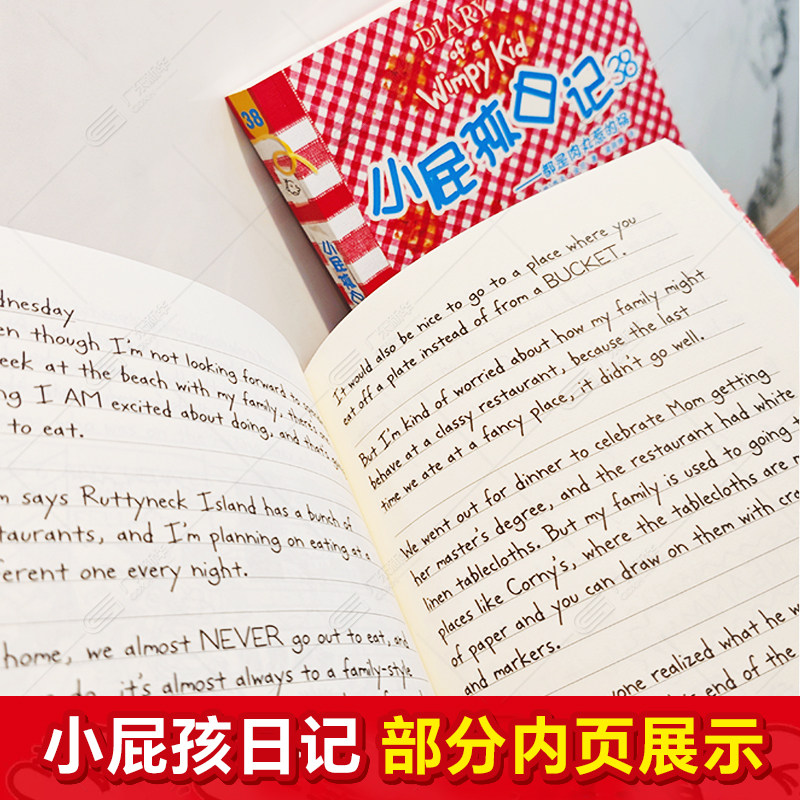 DIARY
of a
Wimpy Kid
小屁孩日记38
——都是肉丸惹的祸
38
dnesday
en though I'm not looking forward to
eek at the beach with my family, there's
ng I AM excited about doing, and that's
to eat.
m says Ruttyneck Island has a bunch of
taurants, and I'm planning on eating at a
fferent one every night.
home, we almost NEVER go out to eat, and
do, it's almost always to a family-style
It would also be nice to go to a place where you
eat off a plate instead of from a BUCKET.
But I'm kind of worried about how my family might
behave at a classy restaurant, because the last
time we ate at a fancy place, it didn't go well.
We went out for dinner to celebrate Mom getting
her master's degree, and the restaurant had white
linen tablecloths. But my family is used to going t
places like Corny's, where the tablecloths are m
of paper and you can draw on them with cra
and markers.
one realized what he w
's end of the
小屁孩日记 部分内页展示